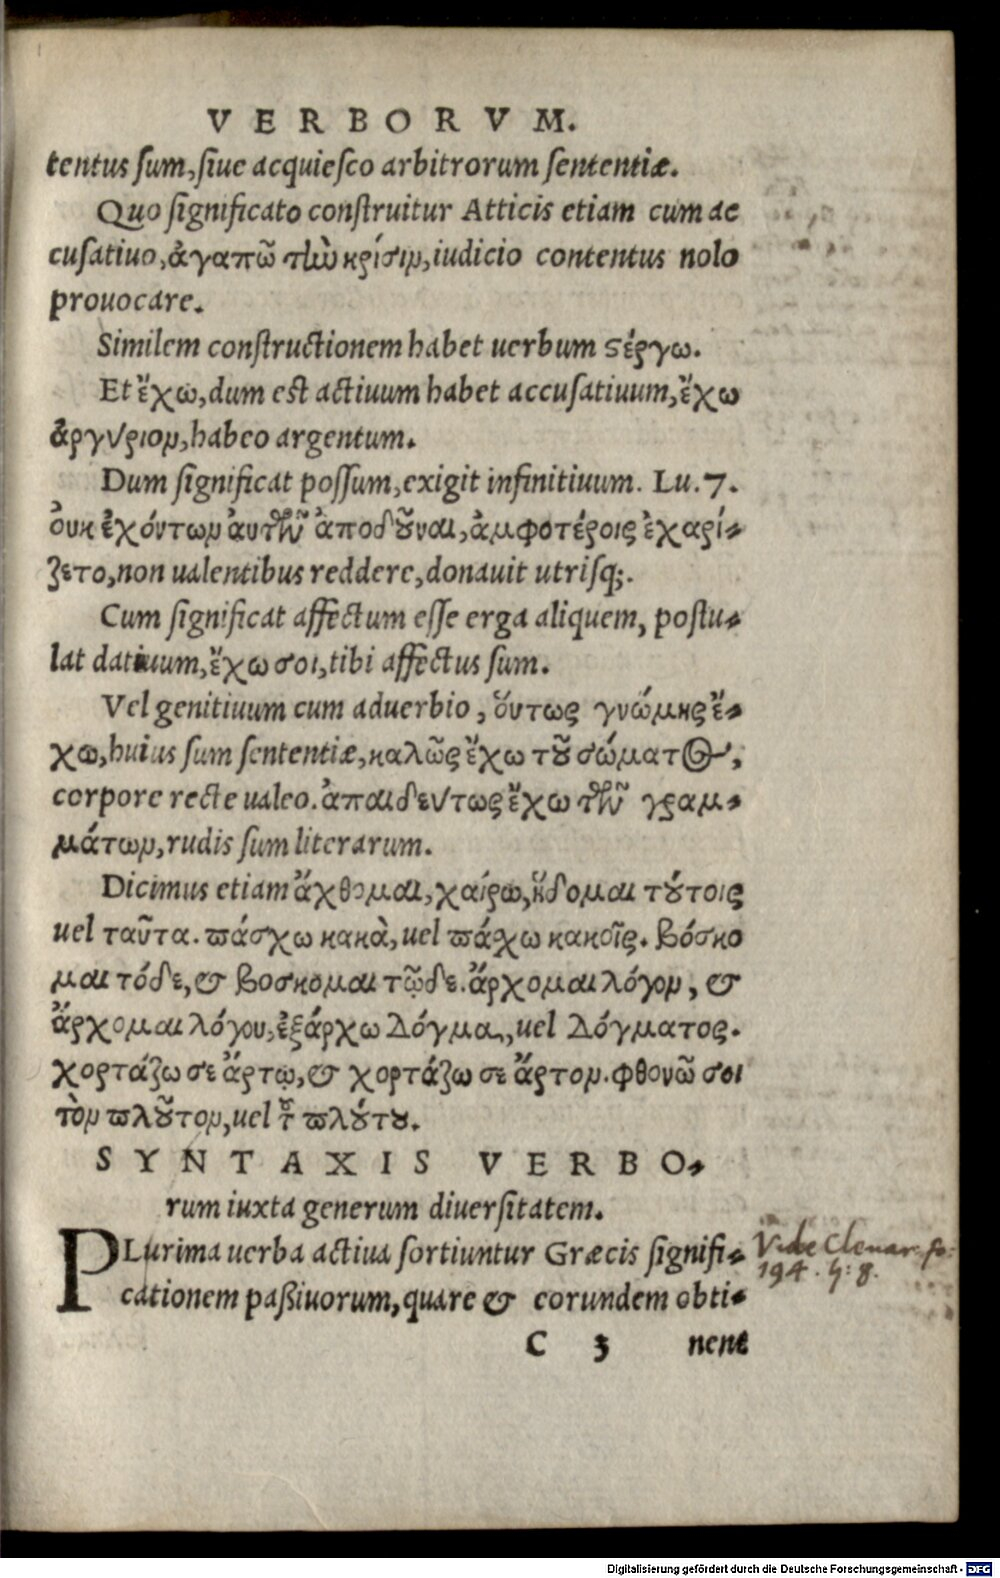 VERBORVM.
tentus sum, siue acquiesco arbitrorum sententiæ.
Quo significato construitur Atticis etiam cum ac
cusatiuo, ἀγαπῶ τὼ κρίσιν, iudicio contentus nolo
prouocare.
Similem constructionem habet uerbum ϛέργω.
Et ἔχω, dum est actiuum habet accusatiuum, ἔχω
ἀργύριον, habeo argentum.
Dum significat possum, exigit infinitiuum. Lu. 7.
ὀυκ ἐχόντων ἀυτῶν ἀποδȣ͂ναι, ἀμφοτέροις ἐχαρί-
ζετο, non ualentibus reddere, donauit utrisq;.
Cum significat affectum esse erga aliquem, postu-
lat datiuum, ἔχω σοι, tibi affectus sum.
Vel genitiuum cum aduerbio, ὅυτως γνώμης ἔ-
χω, huius sum sententiæ, καλῶς ἔχω τȣ͂ σώματος,
corpore recte ualeo. ἀπαιδευτως ἔχω τῶν γραμ-
μάτων, rudis sum literarum.
Dicimus etiam ἄχθομαι, χαίρω, ἥδομαι τȣ́τοις
uel ταῦτα. πάσχω κακὰ, uel πάχω κακοῖς. βόσκο
μαι τόδε, & βοσκομαι τῷδε. ἄρχομαι λόγον, &
ἄρχομαι λόγου, ἐξάρχω δόγμα, uel δόγματος.
χορτάζω σε ἄρτῳ, & χορτάζω σε ἄρτον. φθονῶ σοι
τὸν πλȣ͂τον, uel τȣ͂ πλȣ́τȣ.
SYNTAXIS VERBO-
rum iuxta generum diuersitatem.
PLurima uerba actiua sortiuntur Græcis signifi-
cationem paßiuorum, quare & eorundem obti-
C 3 nent
Vide Clenar. fo:
194. h: 8.
Digitalisierung gefördert durch die Deutsche Forschungsgemeinschaft - DFG